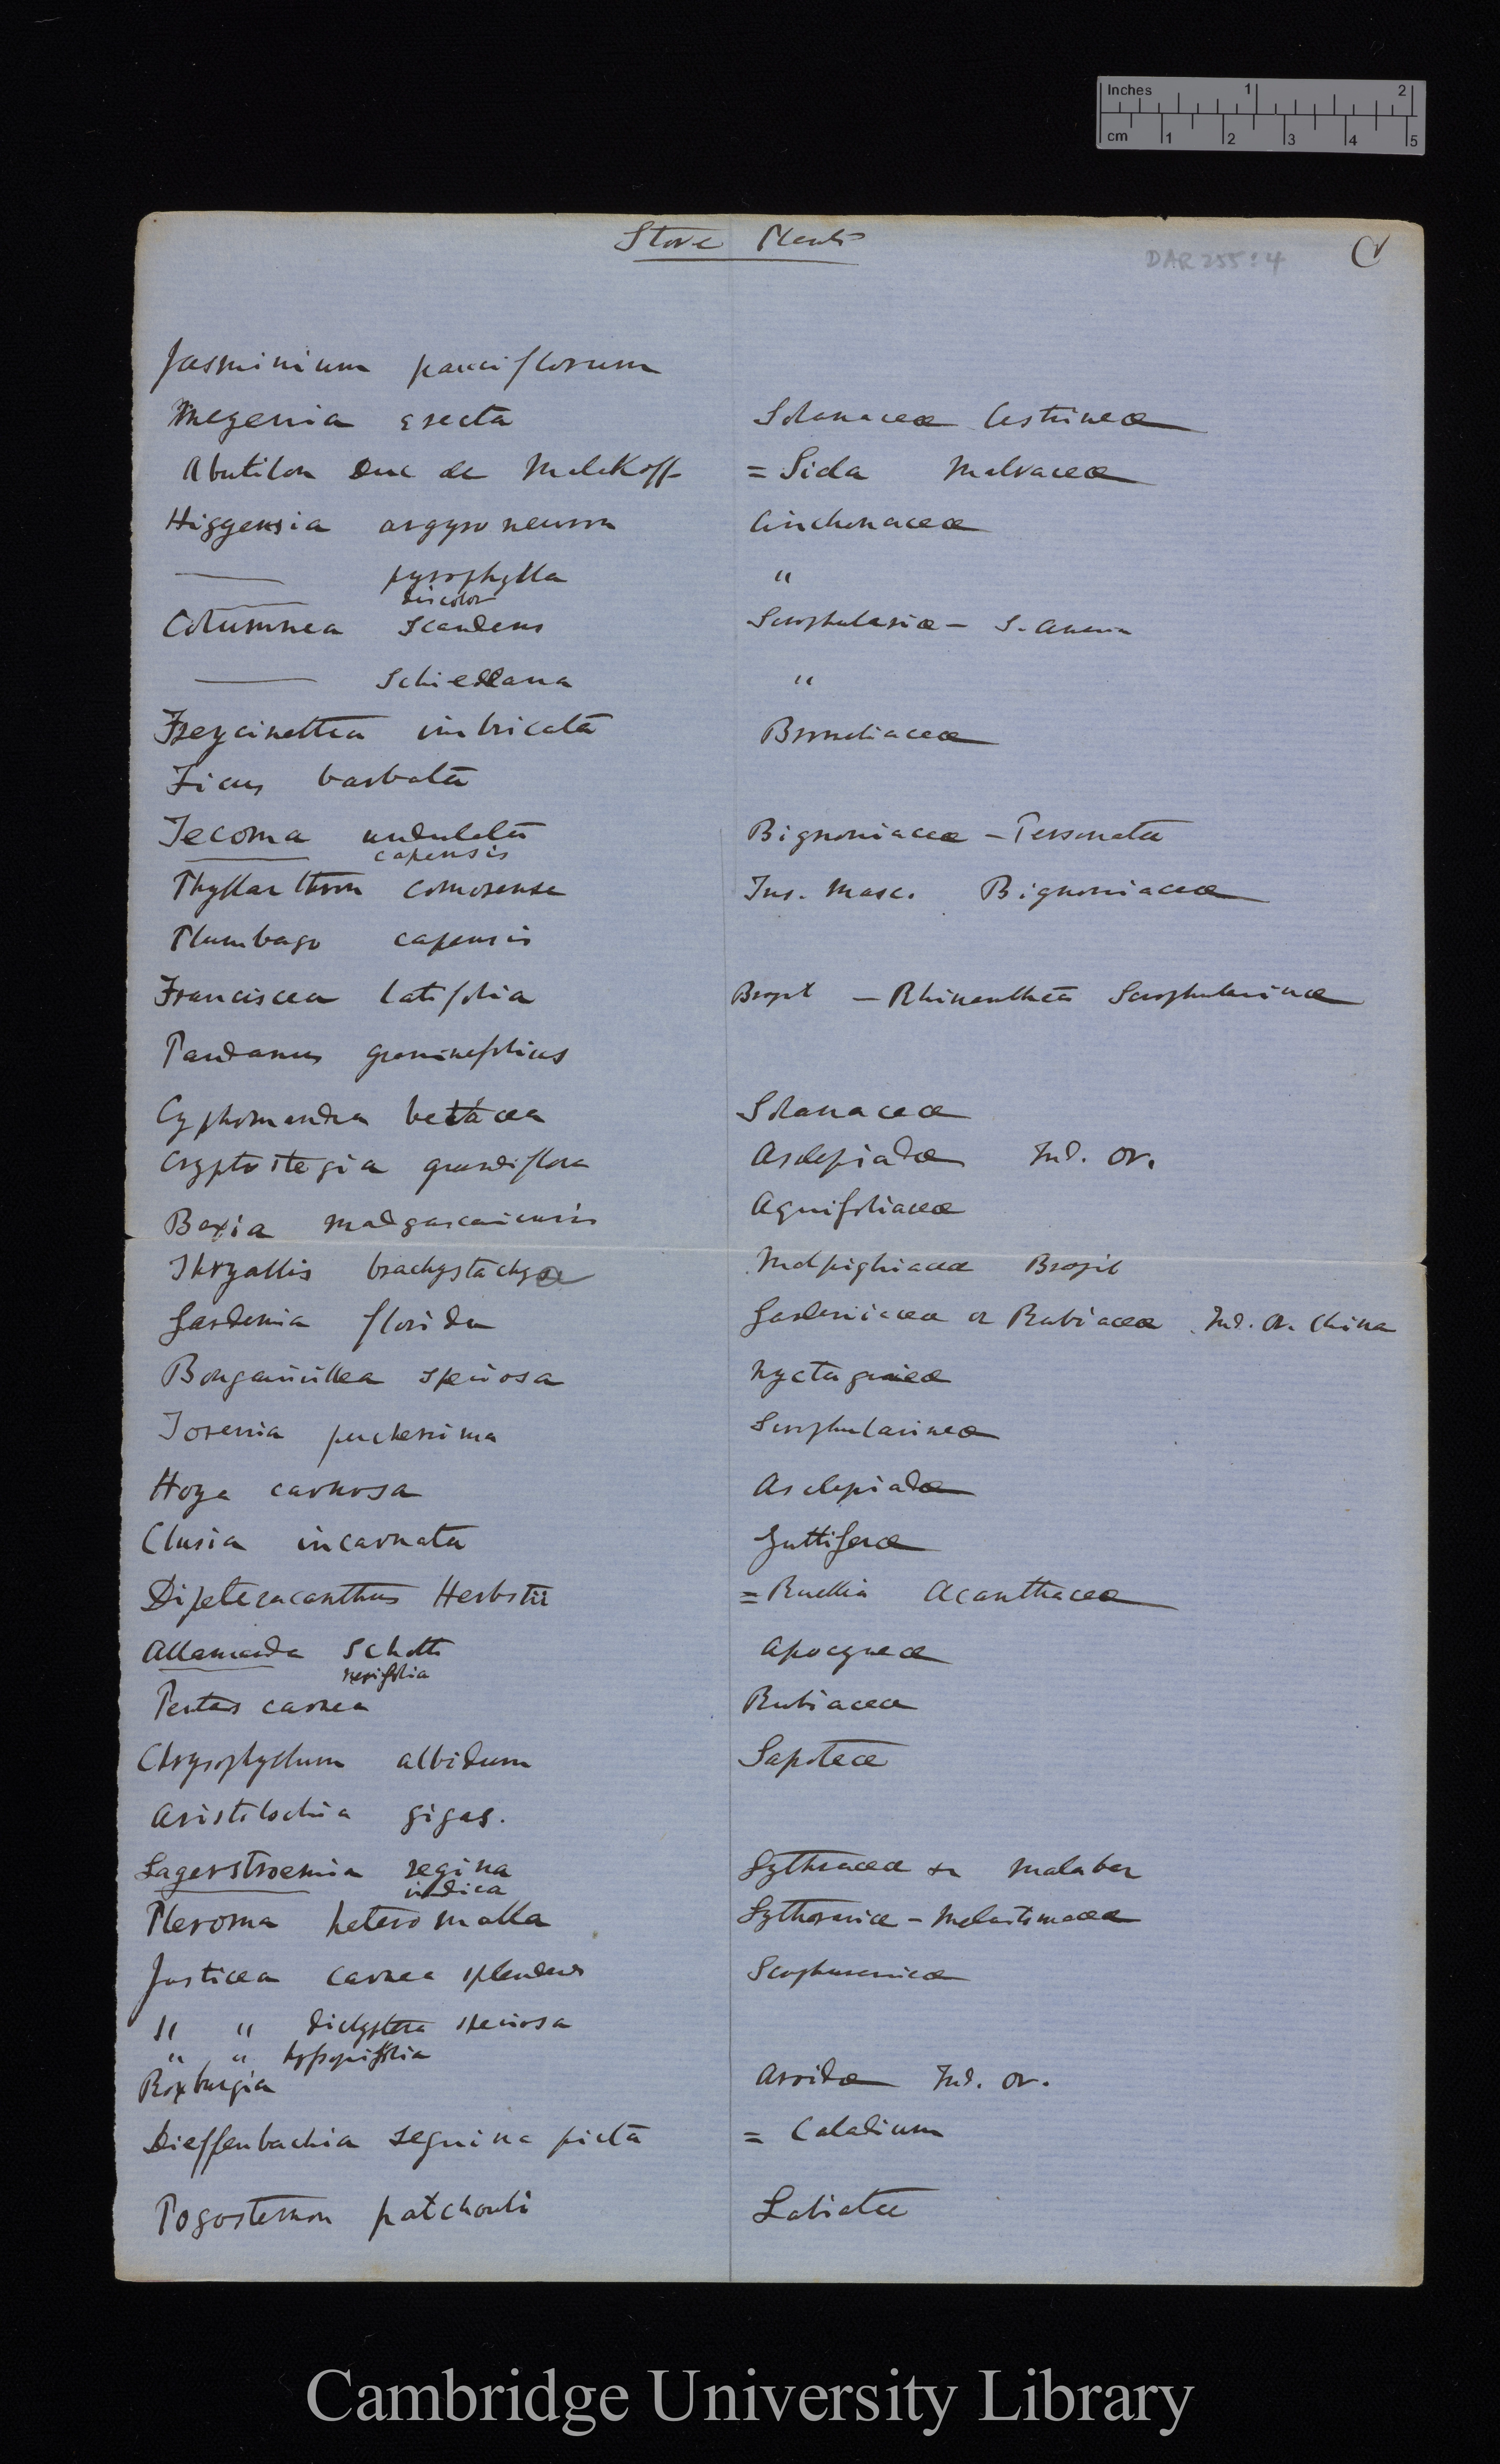 Inches 1 2
cm 1 2 3 4 5
Stove Plants
DAR 255:4
Jasminium pauciflorum
Megenia erecta Solanaceæ Cestrineæ
Abutilon Duc de Malakoff = Sida Malvaceæ
Higgensia argyroneura Cinchonaceæ
—— pyrophylla "
—— discolor
Columnea scandens Scrophulariæ — S. America
—— Schiedeana "
Freycinettia imbricata
Ficus barbata
Tecoma undulata Bignoniaceæ — Personatæ
—— capensis
Phyllarthron comorense Ins. Masc. Bignoniaceæ
Plumbago capensis
Franciscea latifolia Brazil — Rhinantheæ Scrophularineæ
Pandanus graminifolius
Cyphomandra betacea Solanaceæ
Cryptostegia grandiflora Asclepiadæ Ind. Or.
Bexia madgascariensis Aquifoliaceæ
Thryallis brachystachya Malpighiaceæ Brazil
Gardenia florida Gardeniaceæ or Rubiaceæ Ind. Or. China
Bongainvillea speciosa Nyctagineæ
Torenia pulcherrima Scrophularineæ
Hoya carnosa Asclepiadæ
Clusia incarnata Guttiferæ
Dipteracanthus Herbstii = Ruellia Acanthaceæ
Allamanda Schotti Apocyneæ
nerifolia
Pentas carnea Rubiaceæ
Chrysophyllum albidum Sapoteæ
Aristolochia gigas.
Lagerstroemia regina Lythraceæ Malabar
indica
Pleroma heteromalla Lythrariæ — Melastomaceæ
Justicea carnea splendens
" " dicliptera speciosa
" " hyssopifolia
Roxburgia Aroidæ Ind. Or.
Dieffenbachia seguina picta = Caladium
Pogostemon patchouli Labiatæ
Cambridge University Library